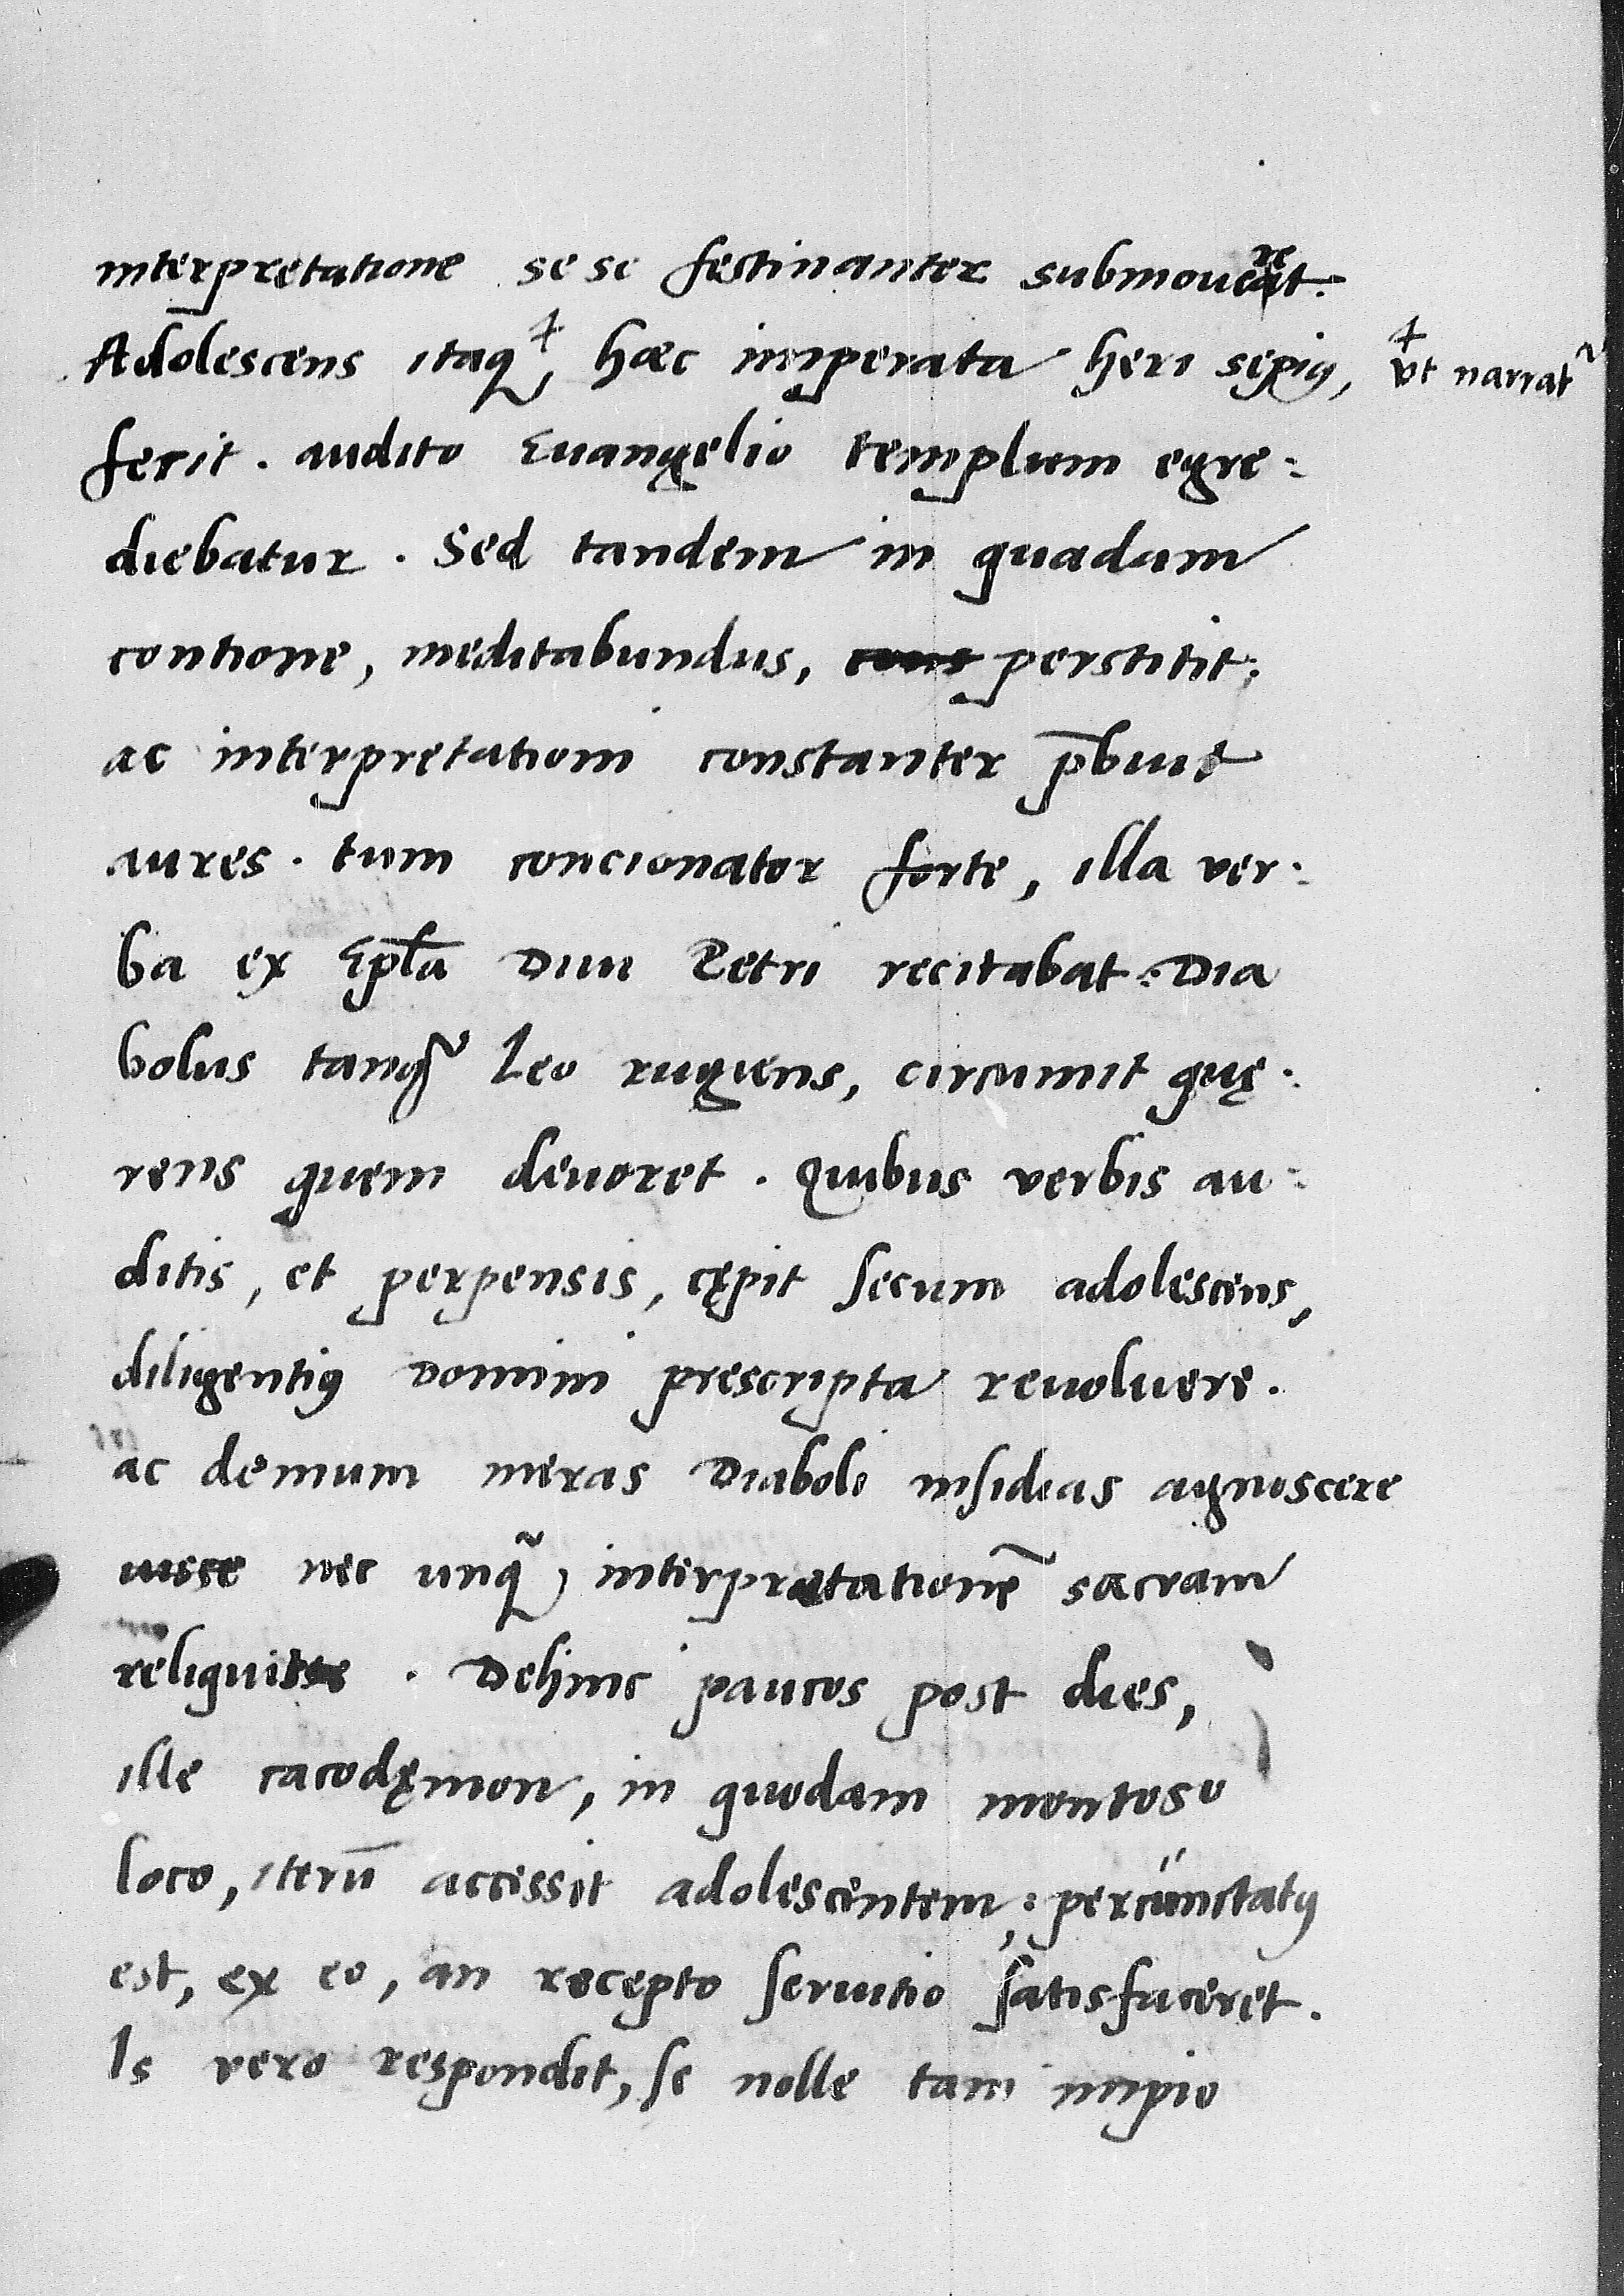 interpretatione sese festinanter submoueret.
Adolescens itaq, ✝ hæc imperata heri sępiꝰ, ✝ vt narrat᷑
ferit. audito Euangelio templum egre:
diebatur. Sed tandem in quadam
contione, meditabundus, perstitit:
ac interpretationi constanter p̄buit
aures. tum concionator forte, illa ver:
ba ex Ep̄la Diui Petri recitabat: Dia
bolus tanq̃ Leo rugiens, circumit quę:
rens quem deuoret. Quibus verbis au:
ditis, et perpensis, cępit secum adolescens,
diligentiꝰ domini prescripta reuoluere.
ac demum meras Diaboli insidias agnoscere
nec unq̃, interpretationē sacram
reliquisse. Dehinc paucos post dies,
ille cacodęmon, in quodam montoso
loco, iterū accessit adolescentem: percunctatꝰ
est, ex eo, an recepto seruitio satisfaceret.
Is vero respondit, se nolle tam impio